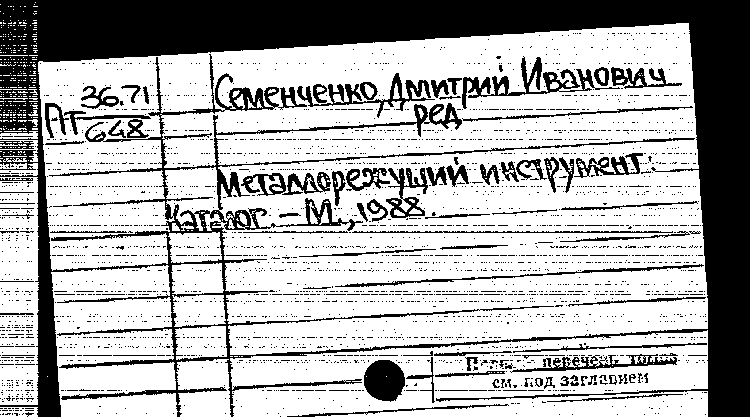 36.71
АТ 648
Семенченко, Дмитрий Иванович
ред
Металлорежущий инструмент:
Каталог. – М., 1988.
перечень томов
см. под заглавием